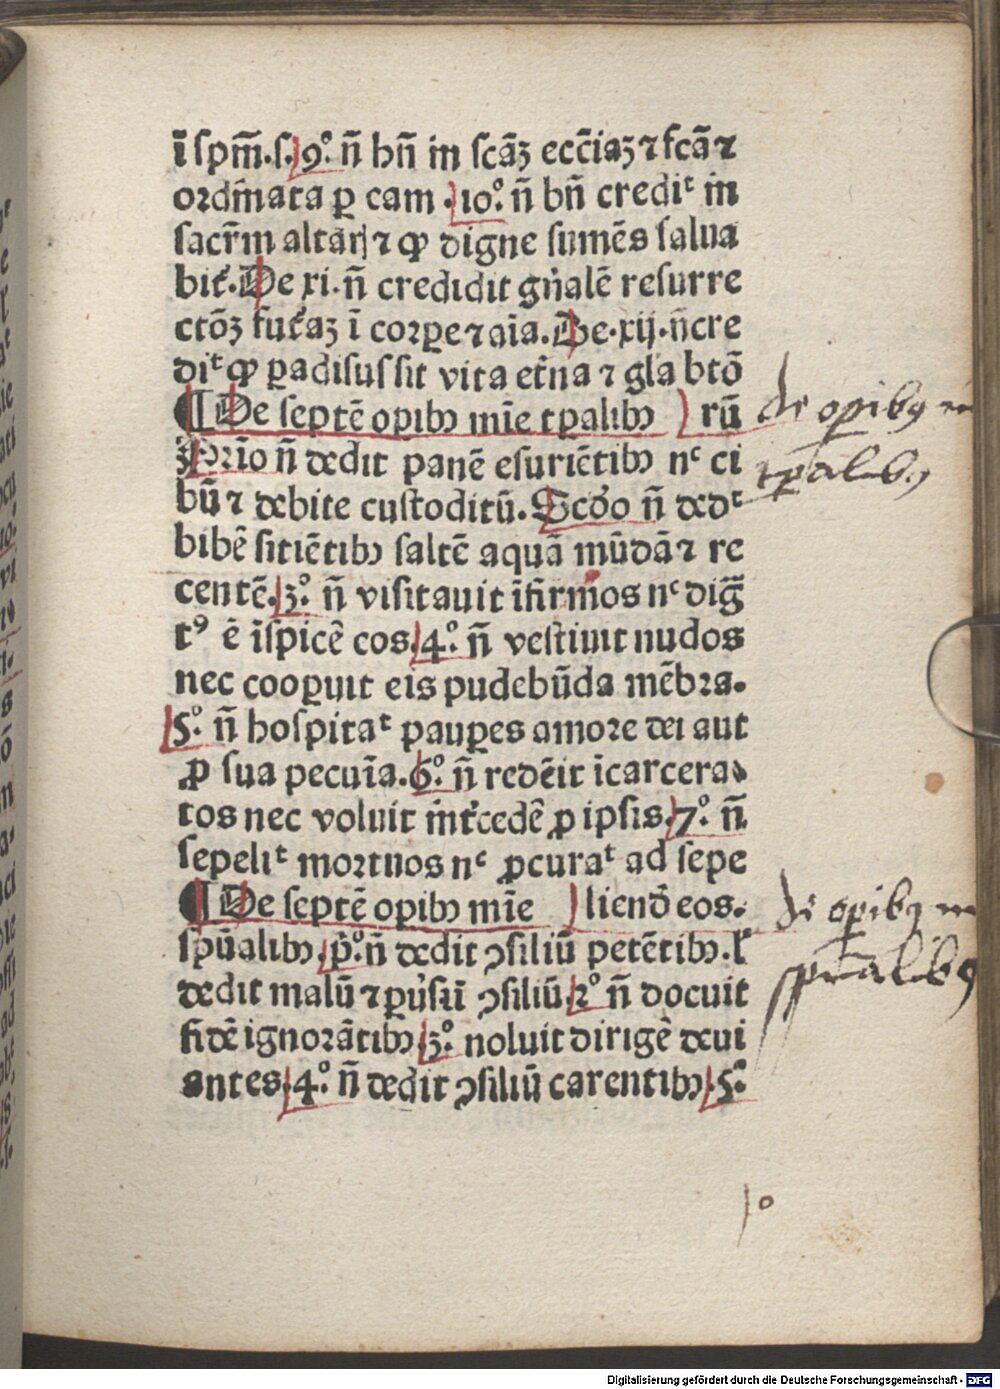 ī ſpm̄.ſ.9.° n̄ bn̄ in ſcāꝫ ecc̄iaꝫ ⁊ fcā ⁊
ordīnata ꝑ eam .10.° n̄ bn̄ credit in
ſacr̄m altarꝭ ⁊ ꝙ digne ſumēs ſalua
bit̛.De xi.n̄ credidit gn̄alē reſurre
ctōꝫ fut̛aꝫ ī corꝑe ⁊ aīa.De.xij.n̄ cre
dit ꝙ ꝑadiſus ſit vita et̄na ⁊ gl̄a btō
¶ De ſeptē oꝑibꝫ mīe tꝑalibꝫ ) rū
ꝫ Prīo n̄ dedit panē eſuriētibꝫ nᶜ ci
bū ⁊ debite cuſtoditū.Scd̄o n̄ dedᵗ
bibē ſitiētibꝫ ſaltē aquā mūdā ⁊ re
centē.3.° n̄ viſitauit īfirmos nᶜ diḡ
tꝰ ē īſpicē eos.4.° n̄ veſtiuit nudos
nec cooꝑuit eis pudebūda mēbra.
5.° n̄ hoſpitaᵗ pauꝑes amore dei aut
ꝓ ſua pecuīa.6.° n̄ redēit īcarcera⸗
tos nec voluit īnt̛cedē ꝓ ipſis.7.° n̄
ſepeliᵗ mortuos nᶜ ꝓcuraᵗ ad ſepe
¶ De ſeptē oꝑibꝫ mīe ) liend̄ eos.
ſpūalibꝫ.p̄.°n̄ dedit ꝯſiliū petētibꝫ.ł
dedit malū ⁊ ꝑūſū ꝯſiliū.2.° n̄ docuit
fidē ignorātibꝫ.3.° noluit dirigē deui
antes.4.° n̄ dedit ꝯſiliū carentibꝫ.5.°
de oꝑibꝫ m
tꝑalibꝫ
de oꝑibꝫ m
ſpūalibꝫ
10
Digitalisierung gefördert durch die Deutsche Forschungsgemeinschaft - DFG